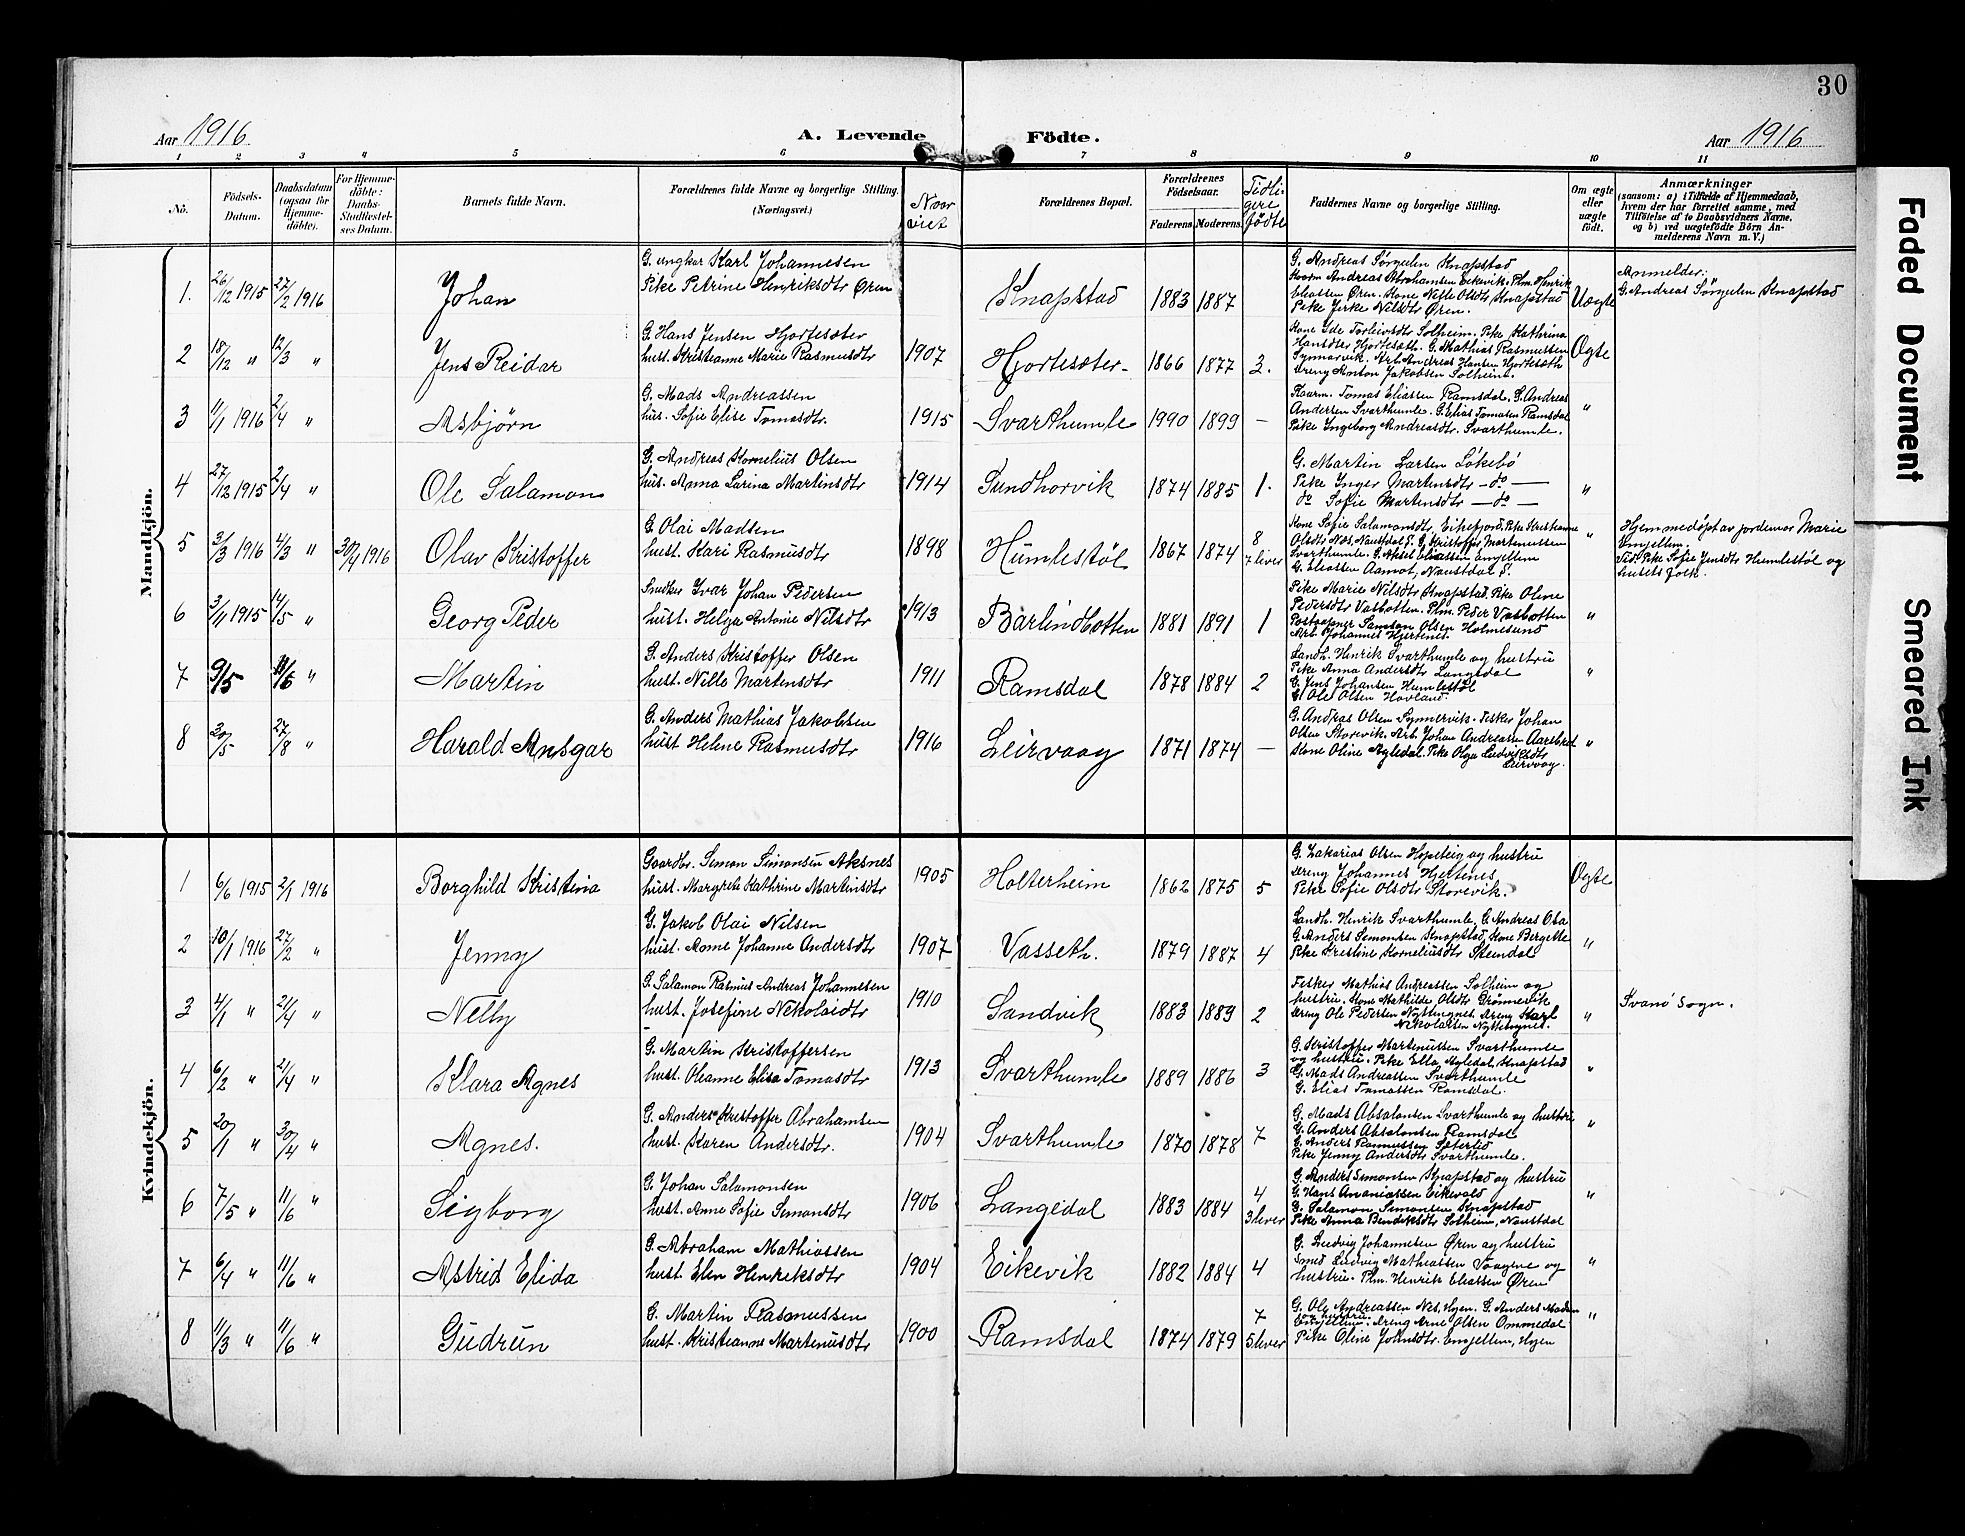 30
Aar 1916
A. Levende Födte.
Aar 1916
1 2 3 4 5 6 7 8 9 10 11
Nö.
Födsels-
Datum.
Daabsdatum
(ogsaa for
Hjemme-
döbte).
For Hjemme-
döbte:
Daabs-
Stadfæstel-
ses Datum.
Barnets fulde Navn.
Forældrenes fulde Navne og borgerlige Stilling.
(Næringsvei.)
Naar
viet
Forældrenes Bopæl.
Forældrenes
Födselsaar.
Faderens. Moderens.
Tidli-
gere
fødte
Faddernes Navne og borgerlige Stilling.
Om ægte
eller
uægte
födt.
Anmærkninger
(saasom: a) i Tilfælde af Hjemmedaab,
hvem der har forrettet samme, med
Tilföielse af to Daabsvidners Navne.
og b) ved uægtefödte Börn An-
melderens Navn m. V.)
Mandkjön.
1. 26/12 1915 27/2 1916 Johan
G. ungkar Karl Johannesen
Pike Petrine Henriksdtr Øren
Knapstad 1883 1887
G. Andreas Sørgulen Knapstad
Kaarm Andreas Abrahamsen Eikevik. Plm. Hinrik
Eliassen Øren. Kone Nille Olsdtr Knapstad
Pike Jirke Nilsdtr Øren.
Uægte
Anmelder:
G. Andreas Sørgulen Knapstad
2 18/12 " 12/3 " Jens Reidar
G. Hans Jensen Hjortesæter
hust. Kristianne Marie Rasmusdtr 1907
Hjortesæter 1866 1877 2.
Kone Ide Torleivsdtr Solheim. Pike Kathrina
Hansdtr Hjortesæth. G. Mathias Rasmussen
Synnarvik. Arb. Andreas Hansen Hjortesæth
Dreng Anton Jakobsen Solheim.
Ægte
3 11/1 1916 2/4 " Asbjørn
G. Mads Andreassen
hus. Sofie Elise Tomasdtr. 1915
Svarthumle 1990 1899 —
Kaarm. Tomas Eliassen Ramsdal. G. Andreas
Andersen Svarthumle. G. Elias Tomasen Ramsdal
Pike Ingeborg Andreasdtr. Svarthumle.
"
4 27/12 1915 2/4 " Ole Salamon
G. Andreas Kornelius Olsen
hus. Anna Larina Martinsdtr 1914
Sundhorvik 1874 1885 1.
G. Martin Larsen Løkebø
Pike Inger Martensdtr — do —
do Sofie Martensdtr — do —
"
5 3/3 1916 4/3 " 30/4 1916 Olav Kristoffer
G. Olai Madsen
hust. Kari Rasmusdtr 1898
Humlestøl 1867 1874 8
7 lever
Kone Sofie Salamonsdtr, Eikefjord. Pike Kristianne
Olsdtr Næs, Naustdal S. G. Kristoffer Martenussen
Svarthumle. G. Aksel Eliassen Emjellem
G. Eliassen Aamot, Naustdal S.
"
Hjemmedøpt av jordemor Marie
Emjellem.
Vid. Pike Sofie Jensdtr Humlestøl og
husets folk.
6 3/11 1915 14/5 " Georg Peder
Snedker Ivar Johan Pedersen
hust. Helga Antonie Nilsdtr 1913
Barlindbotten 1881 1891 1
Pike Marie Nilsdtr Knapstad, Pike Oline
Pedersdtr Vasbotten. Plm. Peder Vasbotten
Postaapner Samson Olsen Holmesund
Arb. Johannes Hjertenes.
"
7 9/5 11/6 " Martin
G. Anders Kristoffer Olsen
hust. Nille Martensdtr 1911
Ramsdal 1878 1884 2
Landh. Henrik Svarthumle og hustru
Pike Anna Andersdtr Langedal
G. Jens Johansen Humlestøl
G. Ole Olsen Hovland.
"
8 30/5 27/8 " Harald Ansgar
G. Anders Mathias Jakobsen
hust Helene Rasmusdtr 1916
Leirvaag 1871 1874 —
G. Andras Olsen Synnervik. Fisker Johan
Olsen Storevik. Arb. Johan Andreassen Aarsbrot
Kone Oline Agledal. Pike Olga Ludvikedtr
Leirvaag.
"
Kvindekjön.
1 6/6 1915 2/1 1916 Borghild Kristina
Gaardbr. Simon Simonsen Aksnes
hust. Margrete Kathrine Martinsdtr 1905
Holterheim 1862 1875 5
G. Zakarias Olsen Hopsteig og hustru
Dreng Johannes Hjertenes
Pike Sofie Olsdtr Storevik.
Ægte
2 10/1 1916 27/2 " Jenny
G. Jakob Olai Nilsen
hust. Anne Johanne Andersdtr 1907
Vasseth. 1879 1887 4
Landh. Henrik Svarthumle, G. Andreas Osa
G. Anders Simonsen Knapstad, Kone Bergette
Pike Kristine Korneliusdtr Steindal
"
3 4/1 " 21/4 " Nelly
G. Salamon Rasmus Andreas Johannesen
hust. Josefine Nikolaidtr 1910
Sandvik 1883 1889 2
Fisker Mathias Andreassen Solheim og
hustru. Kone Mathilde Olsdtr Grønnevik
Dreng Ole Pedersen Nyttingnes. Dreng Karl
Nikolaisen Nyttingnes.
"
Svanø Sogn.
4 6/2 " 21/4 " Klara Agnes
G. Martin Kristoffersen
hust. Oleanne Elisa Tomasdtr 1913
Svarthumle 1889 1886 3
G. Kristoffer Martenussen Svarthumle
og hustru. Pike Ella Agledal, Knapstad
G. Mads Andreassen Svarthumle
G. Elias Tomassen Ramsdal.
"
5 20/1 " 30/4 " Agnes.
G. Anders Kristoffer Abrahamsen
hust. Karen Andersdtr. 1904
Svarthumle 1870 1878 7
G. Mads Absalonsen Svarthumle og hustru
G. Anders Absalonsen Ramsdal
G. Anders Rasmussen Seterlid
Pike Jenny Andersdtr Svarthumle.
"
6 7/5 " 11/6 " Sigborg
G. Johan Salamonsen
hust. Anne Sofie Simonsdtr 1906
Langedal 1883 1884 4
3 lever
G. Anders Simonsen Knapstad og hustru
G. Hans Ananiassen Eikevold
G. Salamon Simonsen Knapstad
Pike Anna Bendiksdtr Solheim, Naustdal
"
7 6/4 " 11/6 " Astrid Elida
G. Abraham Mathiassen
hust. Elen Henriksdtr 1904
Eikevik 1882 1884 4
G. Ludvig Johannesen Øren og hustru
Smed Ludvig Mathiassen Vaagene og
hustru. Plm. Henrik Eliassen Øren
"
8 11/3 " 11/6 " Gudrun
G. Martin Rasmussen
hust. Kristianne Martenusdtr 1900
Ramsdal 1874 1879 7
5 lever
G. Ole Andreassen Nes, Hyen. G. Anders Madsen
og hustru
Emjellem. Dreng Arne Olsen Ommedal
Pike Oline Johnsdtr. Emjellem, Hyen
"
Faded Document Smeared Ink